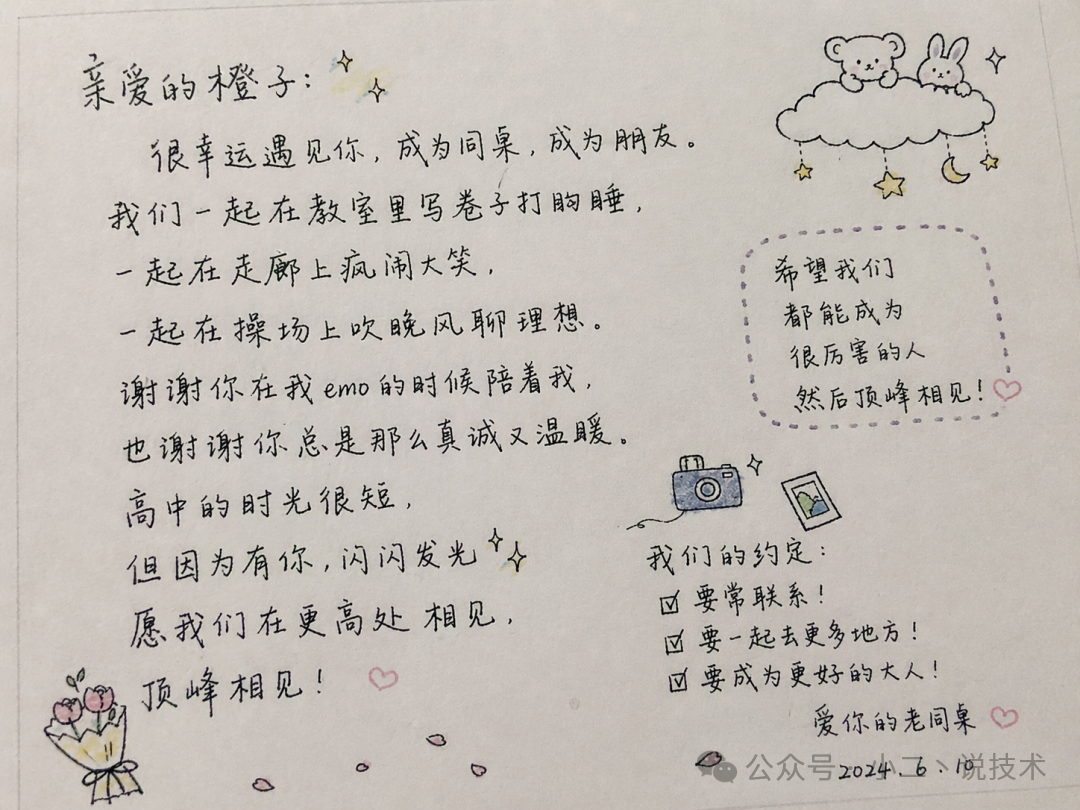 亲爱的橙子：
很幸运遇见你，成为同桌，成为朋友。
我们一起在教室里写卷子打眴睡，
一起在走廊上疯闹大笑，
一起在操场上吹晚风聊理想。
谢谢你在我emo的时候陪着我，
也谢谢你总是那么真诚又温暖。
高中的时光很短，
但因为有你，闪闪发光
愿我们在更高处相见，
顶峰相见！
希望我们
都能成为
很厉害的人
然后顶峰相见！
我们的约定：
☑ 要常联系！
☑ 要一起去更多地方！
☑ 要成为更好的大人！
爱你的老同桌
2024.6.10
公众号·小二丶说技术